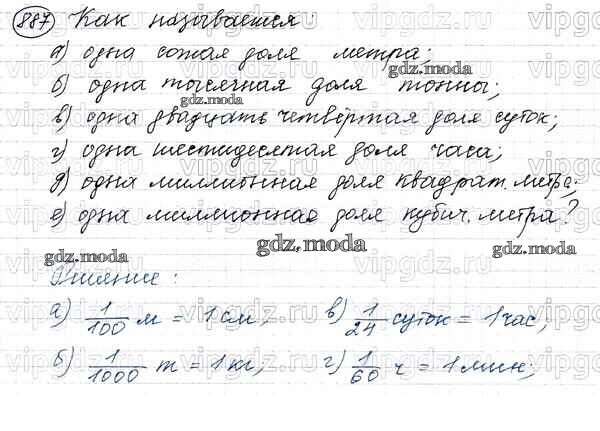 887 Как называется:
а) одна сотая доля метра;
б) одна тысячная доля тонны;
в) одна двадцать четвёртая доля суток;
г) одна шестидесятая доля часа;
д) одна миллионная доля квадрат. метра;
е) одна миллионная доля кубич. метра?
Решение:
а) 1/100 м = 1 см; в) 1/24 суток = 1 час;
б) 1/1000 т = 1 кг; г) 1/60 ч = 1 мин;
gdz.moda
gdz.moda
gdz.moda
gdz.moda
gdz.moda
gdz.moda
vipgdz.ru